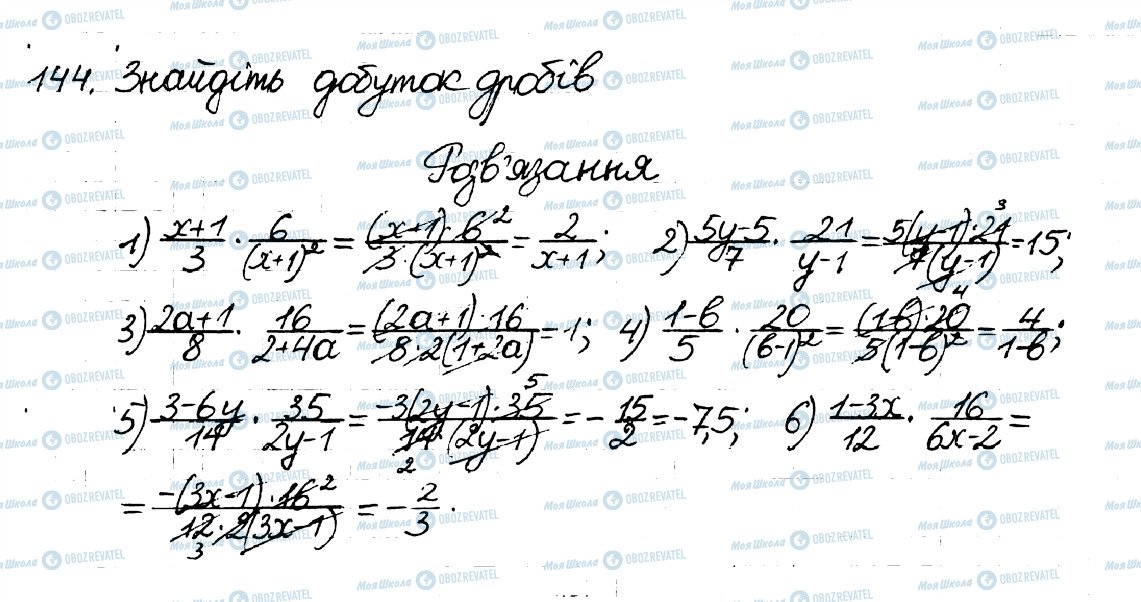 144. Знайдіть добуток дробів
Розв'язання
1) (x+1)/3 · 6/(x+1)² = ((x+1)·6²)/(3·(x+1)²) = 2/(x+1); 2) (5y-5)/7 · 21/(y-1) = (5(y-1)·21³)/(7(y-1)) = 15;
3) (2a+1)/8 · 16/(2+4a) = ((2a+1)·16)/(8·2(1+2a)) = 1; 4) (1-b)/5 · 20/(b-1)² = ((1-b)·20⁴)/(5(1-b)²) = 4/(1-b);
5) (3-6y)/14 · 35/(2y-1) = (-3(2y-1)·35⁵)/(14₂·(2y-1)) = -15/2 = -7,5; 6) (1-3x)/12 · 16/(6x-2) =
= (-(3x-1)·16²)/(12₃·2(3x-1)) = -2/3.
Моя Школа OBOZREVATEL